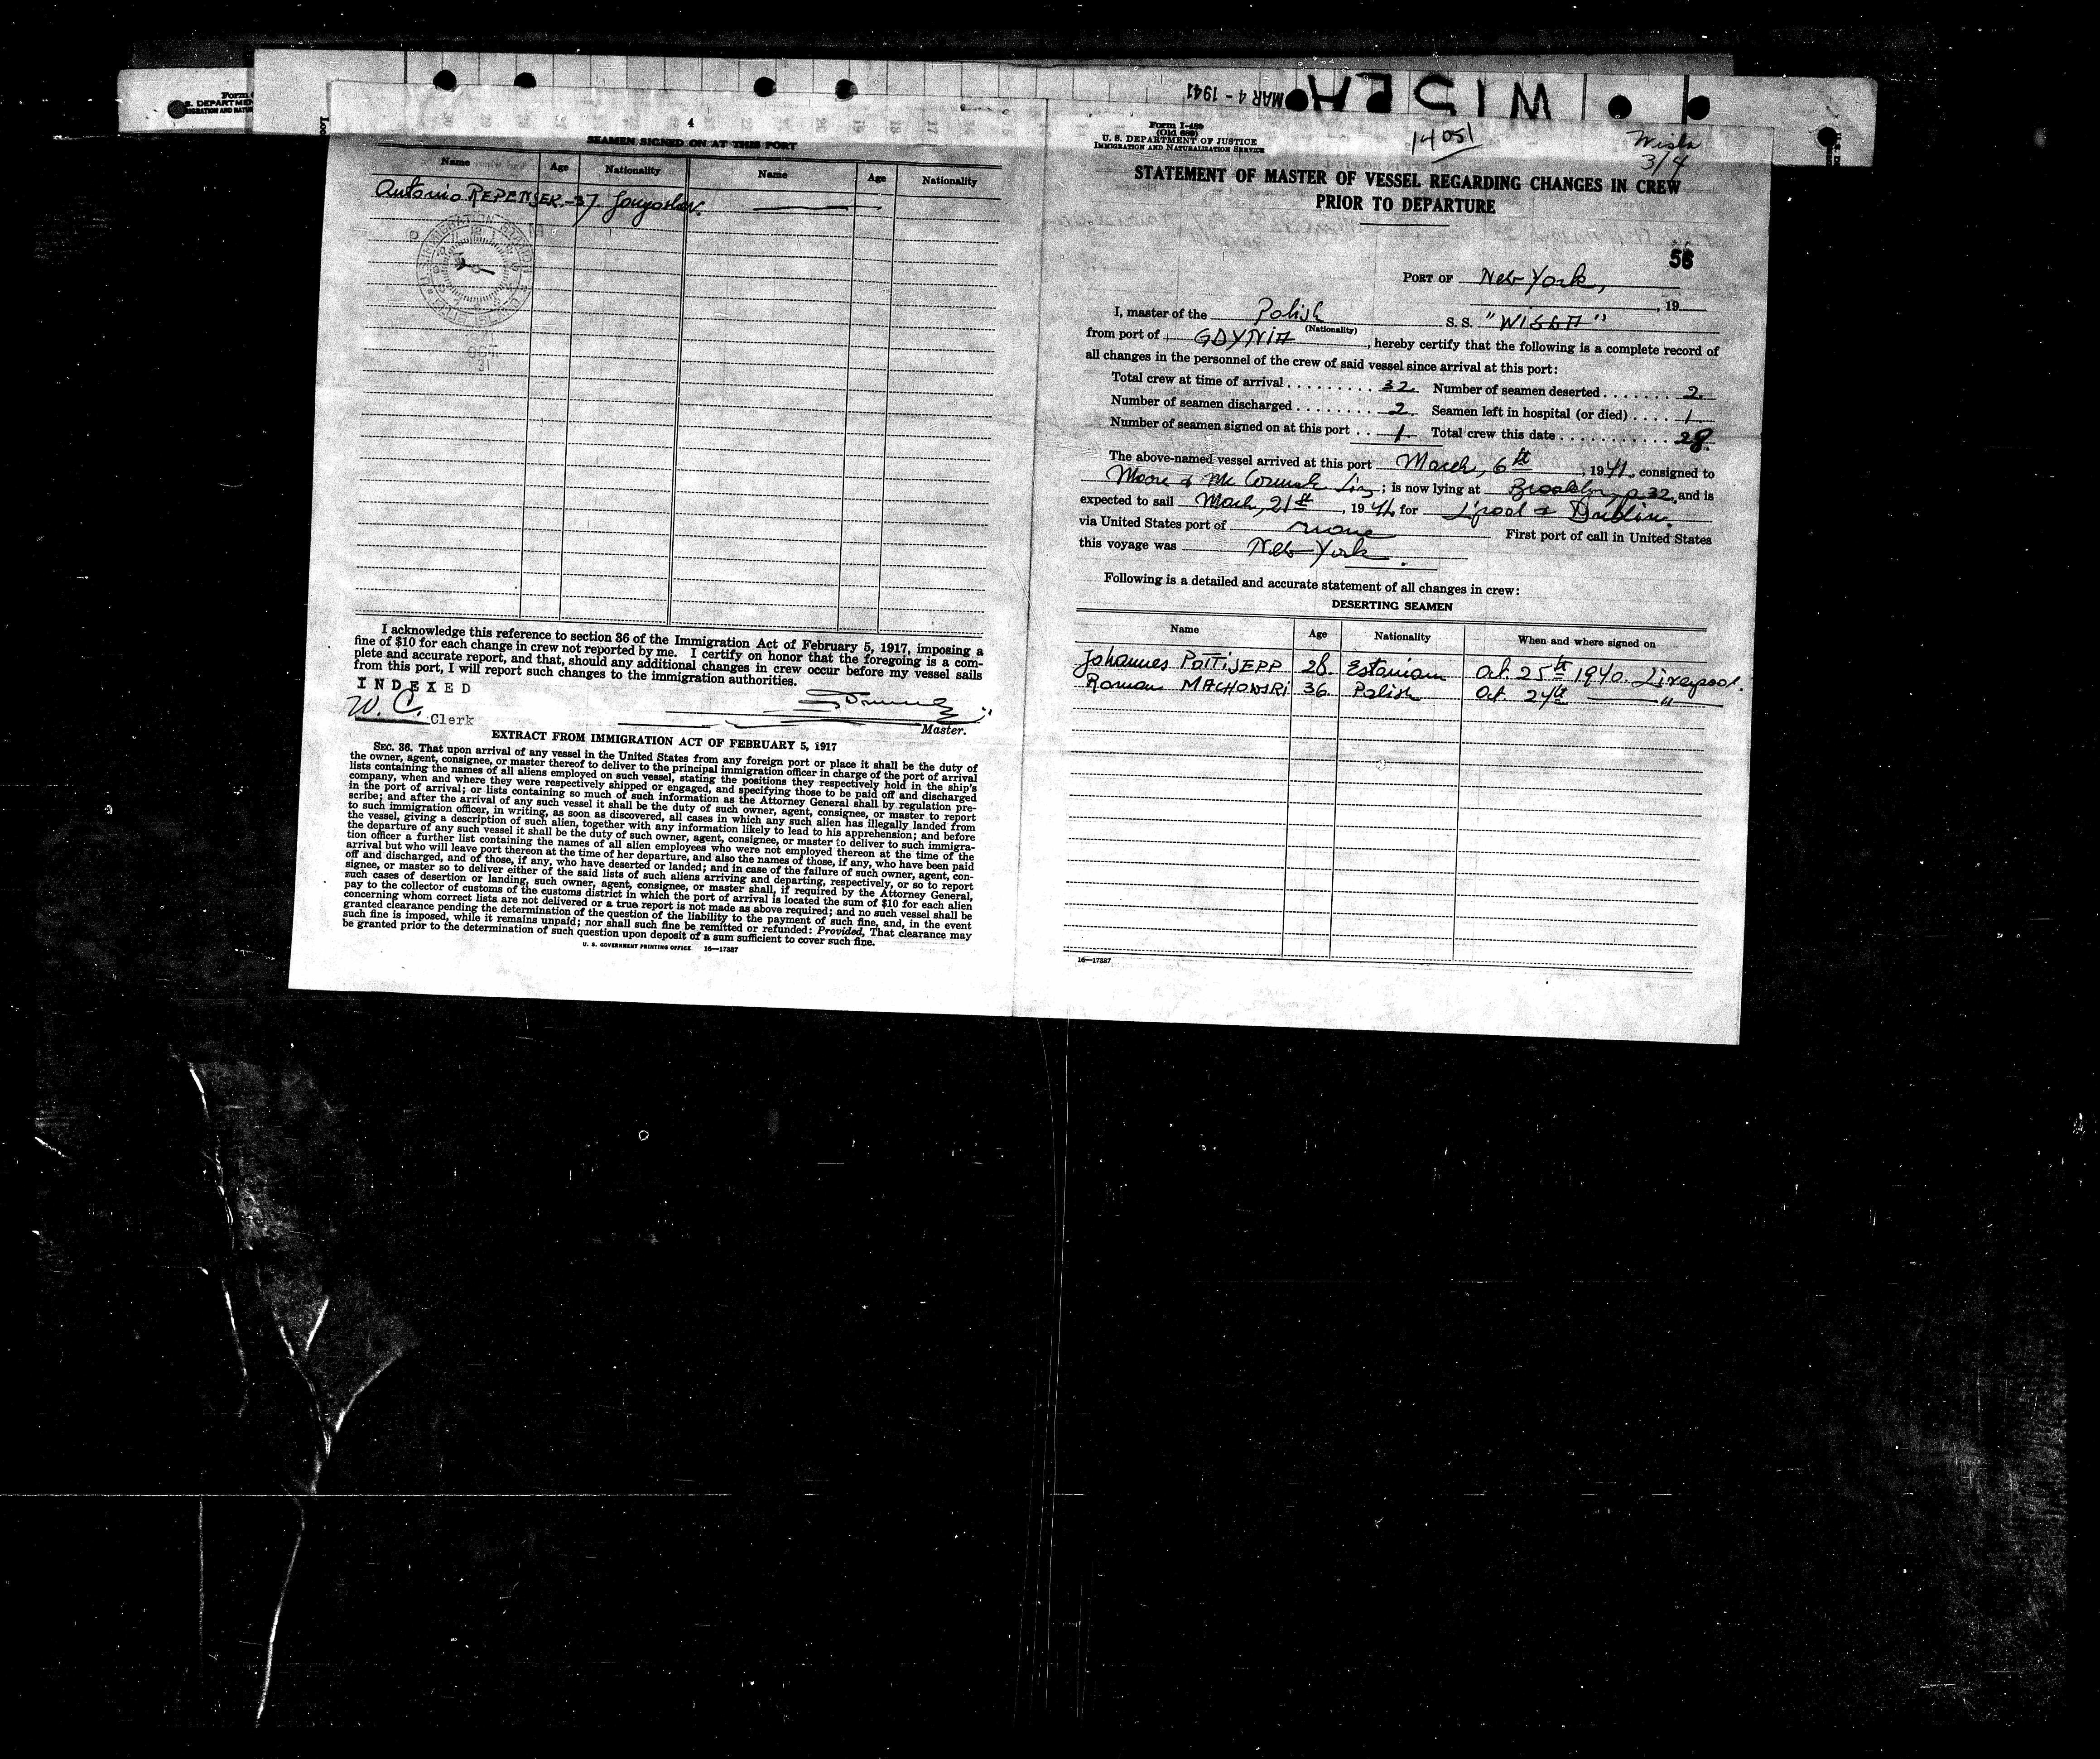 Form
S. DEPARTMEN
MIGRATION AND NATU
MAR 4 - 1941
4
SEAMEN SIGNED ON AT THIS PORT
Name Age Nationality Name Age Nationality
Antonio REPENSEK - 37. Jougoslav.
OCT
31
I acknowledge this reference to section 36 of the Immigration Act of February 5, 1917, imposing a
fine of $10 for each change in crew not reported by me. I certify on honor that the foregoing is a com-
plete and accurate report, and that, should any additional changes in crew occur before my vessel sails
from this port, I will report such changes to the immigration authorities.
INDEXED
W. C. Clerk
Master.
EXTRACT FROM IMMIGRATION ACT OF FEBRUARY 5, 1917
SEC. 36. That upon arrival of any vessel in the United States from any foreign port or place it shall be the duty of
the owner, agent, consignee, or master thereof to deliver to the principal immigration officer in charge of the port of arrival
lists containing the names of all aliens employed on such vessel, stating the positions they respectively hold in the ship's
company, when and where they were respectively shipped or engaged, and specifying those to be paid off and discharged
in the port of arrival; or lists containing so much of such information as the Attorney General shall by regulation pre-
scribe; and after the arrival of any such vessel it shall be the duty of such owner, agent, consignee, or master to report
to such immigration officer, in writing, as soon as discovered, all cases in which any such alien has illegally landed from
the vessel, giving a description of such alien, together with any information likely to lead to his apprehension; and before
the departure of any such vessel it shall be the duty of such owner, agent, consignee, or master to deliver to such immigra-
tion officer a further list containing the names of all alien employees who were not employed thereon at the time of the
arrival but who will leave port thereon at the time of her departure, and also the names of those, if any, who have been paid
off and discharged, and of those, if any, who have deserted or landed; and in case of the failure of such owner, agent, con-
signee, or master so to deliver either of the said lists of such aliens arriving and departing, respectively, or so to report
such cases of desertion or landing, such owner, agent, consignee, or master shall, if required by the Attorney General,
pay to the collector of customs of the customs district in which the port of arrival is located the sum of $10 for each alien
concerning whom correct lists are not delivered or a true report is not made as above required; and no such vessel shall be
granted clearance pending the determination of the question of the liability to the payment of such fine, and, in the event
such fine is imposed, while it remains unpaid; nor shall such fine be remitted or refunded: Provided, That clearance may
be granted prior to the determination of such question upon deposit of a sum sufficient to cover such fine.
U. S. GOVERNMENT PRINTING OFFICE 16—17887
Form I-489
(Old 689)
U. S. DEPARTMENT OF JUSTICE
IMMIGRATION AND NATURALIZATION SERVICE
14051
Wisla
3/4
STATEMENT OF MASTER OF VESSEL REGARDING CHANGES IN CREW
PRIOR TO DEPARTURE
56
PORT OF New York,
, 19
I, master of the Polish S. S. "WISLA"
(Nationality)
from port of GDYNIA, hereby certify that the following is a complete record of
all changes in the personnel of the crew of said vessel since arrival at this port:
Total crew at time of arrival 32. Number of seamen deserted 2.
Number of seamen discharged 2 Seamen left in hospital (or died) 1
Number of seamen signed on at this port 1 Total crew this date 28.
The above-named vessel arrived at this port March, 6th, 1941. consigned to
Moore & Mc Cormak Line; is now lying at Brooklyn, p 32, and is
expected to sail March, 21st, 1941, for L'pool & Dublin.
via United States port of none First port of call in United States
this voyage was New York.
Following is a detailed and accurate statement of all changes in crew:
DESERTING SEAMEN
Name Age Nationality When and where signed on
Johannes POTTiSEPP 28. Estonian Oct. 25th 1940. Liverpool.
Roman MACHOWSKI 36. Polish Oct. 24th — " —
16—17887